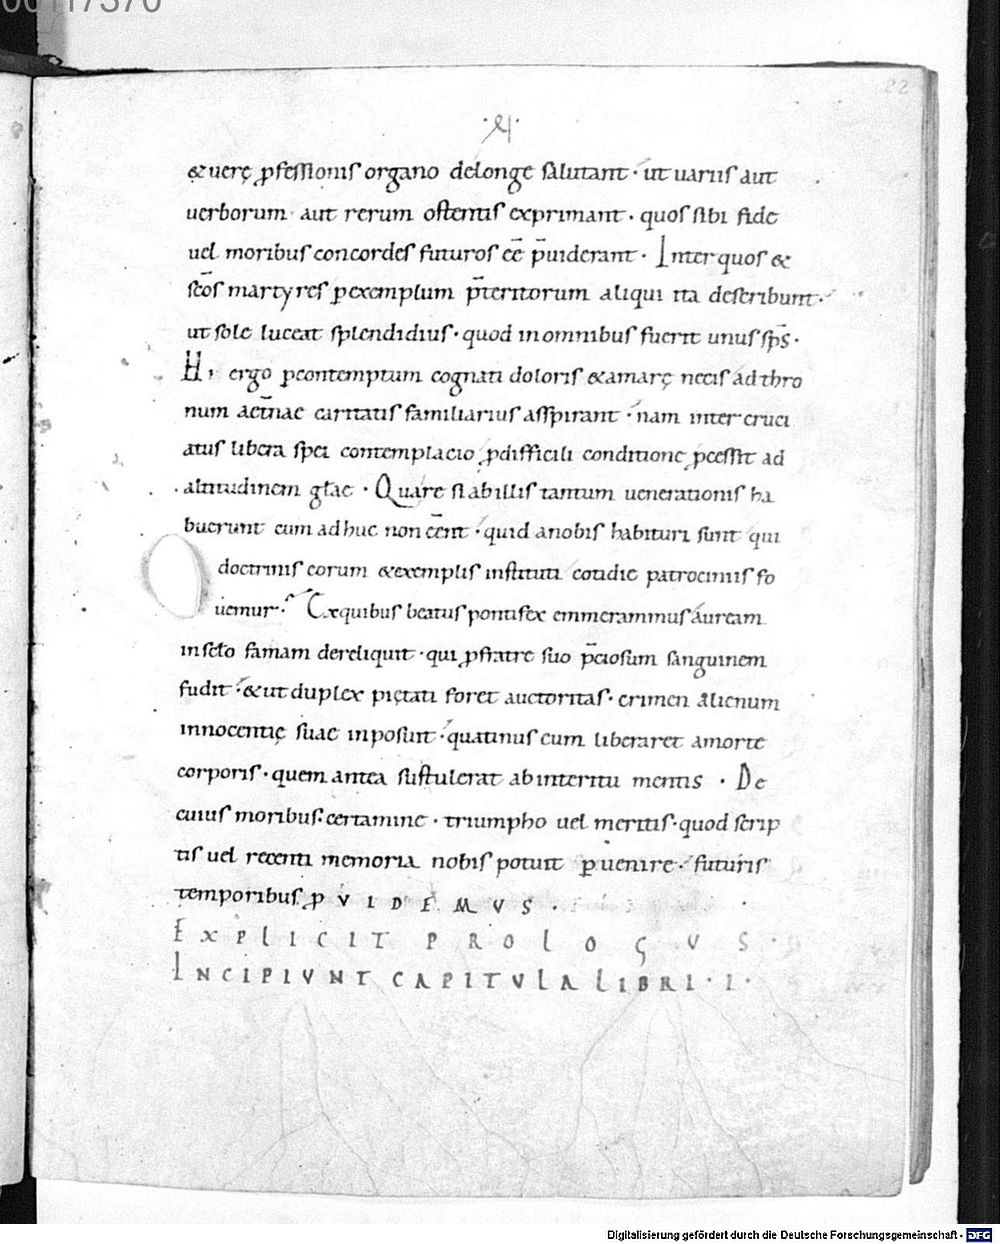 00117370
22
·xl·
&uerę ꝓfessionis organo delonge salutant · ut uariis aut
uerborum aut rerum ostentis exprimant · quos sibi fide
uel moribus concordes futuros ee͞ p̄uiderant · Inter quos &
sc̄os martyres ꝑexemplum p̄teritorum aliqui ita describunt·
ut sole luceat splendidius · quod inomnibus fuerit unus sp̄s ·
Hi ergo ꝑcontemptum cognati doloris &amarę necis adthro
num aet̄nae caritatis familiarius asspirant · nam inter cruci
atus libera spei contemplacio ꝓdifficili conditione ꝓcessit ad
altitudinem gl̄ae · Quare si abillis tantum uenerationis ha
buerunt cum adhuc non ēent · quid anobis habituri sunt qui
doctrinis eorum &exemplis instituti cotidie patrociniis fo
uemur · Exquibus beatus pontifex emmerammus auream
insc̄lo famam dereliquit · qui ꝓfratre suo p̄ciosum sanguinem
fudit · &ut duplex piętati foret auctoritas · crimen alienum
innocentię suae inposuit · quatinus eum liberaret amorte
corporis · quem antea sustulerat abinteritu mentis · De
cuius moribus · certamine · triumpho uel meritis · quod scrip
tis uel recenti memoria nobis potuit ꝑuenire · futuris
temporibus ꝓVIDEMVS ·
EXPLICIT PROLOGVS ·
INCIPIVNT CAPITVLA LIBRI · I ·
Digitalisierung gefördert durch die Deutsche Forschungsgemeinschaft - DFG